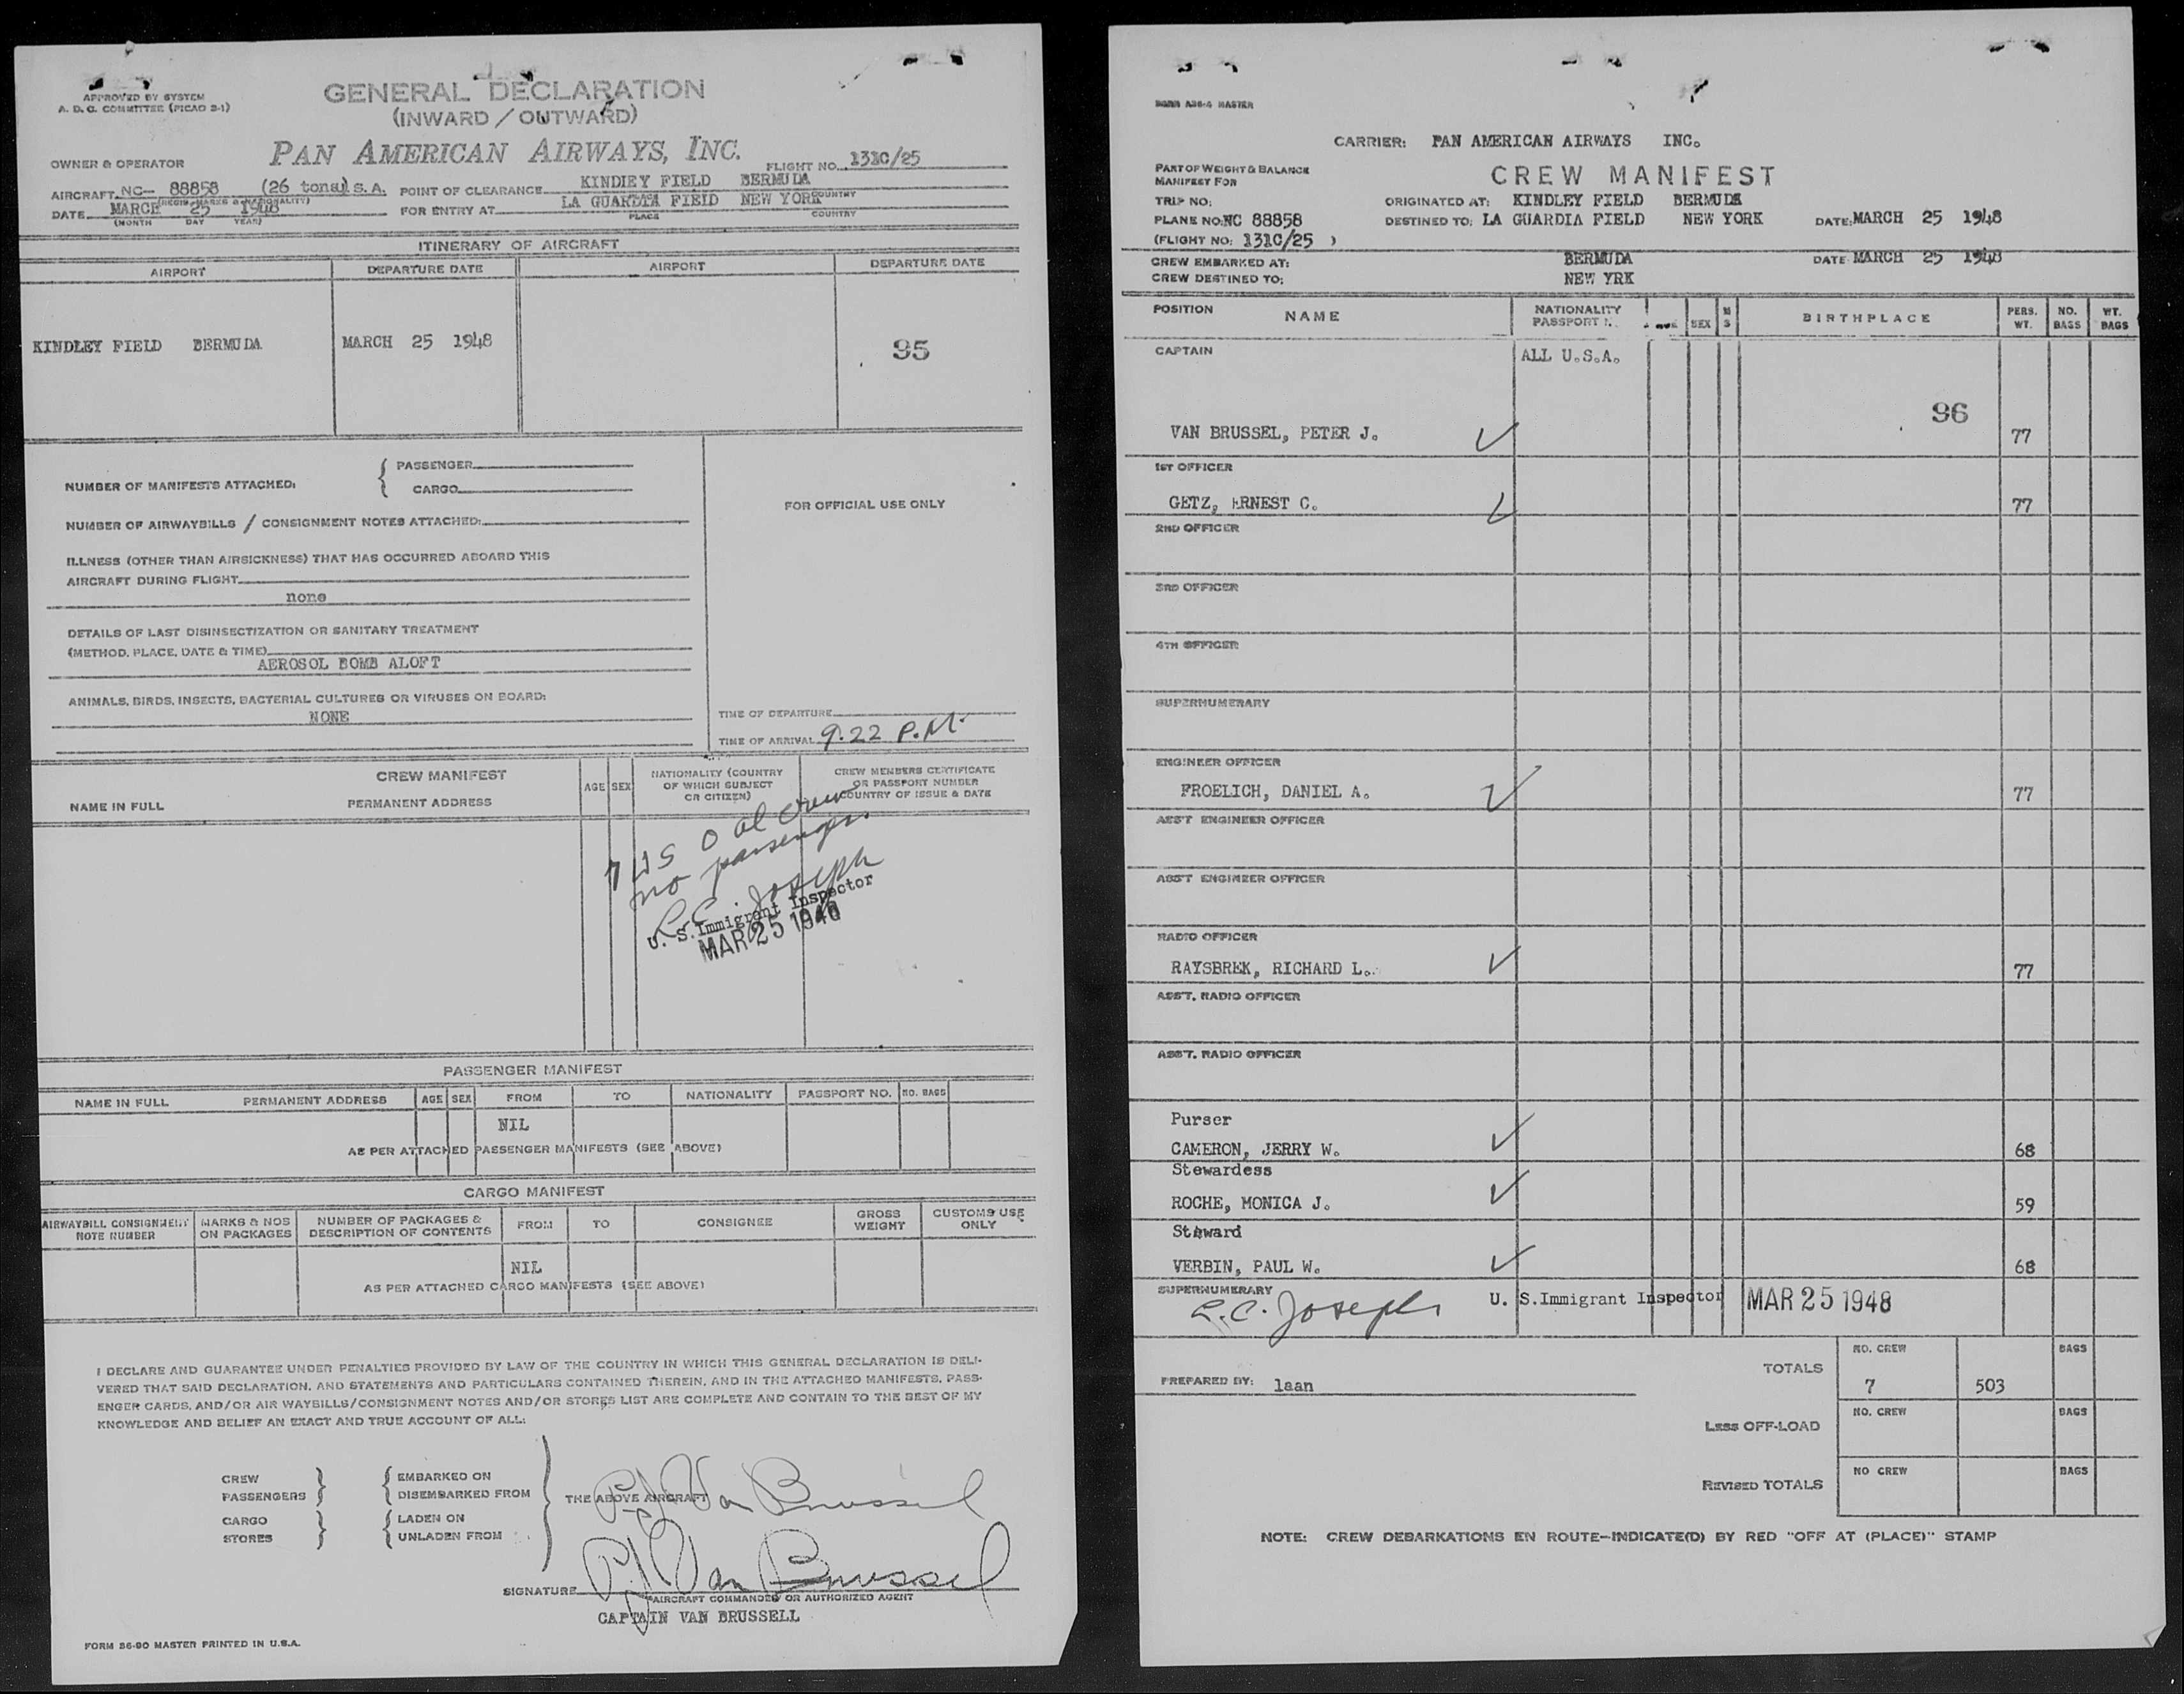 APPROVED BY SYSTEM
A. D. C. COMMITTEE (PICAO B-1)
GENERAL DECLARATION
(INWARD / OUTWARD)
OWNER & OPERATOR PAN AMERICAN AIRWAYS, INC. FLIGHT NO. 131C/25
AIRCRAFT NC- 88858 (26 tons) S. A. POINT OF CLEARANCE KINDLEY FIELD BERMUDA
(REGIS. MARKS & NATIONALITY) COUNTRY
DATE MARCH 25 1948 FOR ENTRY AT LA GUARDIA FIELD NEW YORK
(MONTH DAY YEAR) PLACE COUNTRY
ITINERARY OF AIRCRAFT
AIRPORT DEPARTURE DATE AIRPORT DEPARTURE DATE
KINDLEY FIELD BERMUDA MARCH 25 1948 95
NUMBER OF MANIFESTS ATTACHED: { PASSENGER
CARGO
NUMBER OF AIRWAYBILLS / CONSIGNMENT NOTES ATTACHED:
FOR OFFICIAL USE ONLY
ILLNESS (OTHER THAN AIRSICKNESS) THAT HAS OCCURRED ABOARD THIS
AIRCRAFT DURING FLIGHT
none
DETAILS OF LAST DISINSECTIZATION OR SANITARY TREATMENT
(METHOD, PLACE, DATE & TIME)
AEROSOL BOMB ALOFT
ANIMALS, BIRDS, INSECTS, BACTERIAL CULTURES OR VIRUSES ON BOARD:
NONE
TIME OF DEPARTURE
TIME OF ARRIVAL 9:22 P.M.
CREW MANIFEST
NAME IN FULL PERMANENT ADDRESS AGE SEX NATIONALITY (COUNTRY OF WHICH SUBJECT OR CITIZEN) CREW MEMBERS CERTIFICATE OR PASSPORT NUMBER COUNTRY OF ISSUE & DATE
7 US 0 al crew
no passenger
R.C. Joseph
U. S. Immigrant Inspector
MAR 25 1948
PASSENGER MANIFEST
NAME IN FULL PERMANENT ADDRESS AGE SEX FROM TO NATIONALITY PASSPORT NO. NO. BAGS
NIL
AS PER ATTACHED PASSENGER MANIFESTS (SEE ABOVE)
CARGO MANIFEST
AIRWAYBILL CONSIGNMENT NOTE NUMBER MARKS & NOS ON PACKAGES NUMBER OF PACKAGES & DESCRIPTION OF CONTENTS FROM TO CONSIGNEE GROSS WEIGHT CUSTOMS USE ONLY
NIL
AS PER ATTACHED CARGO MANIFESTS (SEE ABOVE)
I DECLARE AND GUARANTEE UNDER PENALTIES PROVIDED BY LAW OF THE COUNTRY IN WHICH THIS GENERAL DECLARATION IS DELI-
VERED THAT SAID DECLARATION, AND STATEMENTS AND PARTICULARS CONTAINED THEREIN, AND IN THE ATTACHED MANIFESTS, PASS-
ENGER CARDS, AND/OR AIR WAYBILLS/CONSIGNMENT NOTES AND/OR STORES LIST ARE COMPLETE AND CONTAIN TO THE BEST OF MY
KNOWLEDGE AND BELIEF AN EXACT AND TRUE ACCOUNT OF ALL:
CREW } { EMBARKED ON
PASSENGERS DISEMBARKED FROM
THE ABOVE AIRCRAFT P.J. Van Brussel
CARGO } { LADEN ON
STORES UNLADEN FROM
SIGNATURE P.J. Van Brussel
AIRCRAFT COMMANDER OR AUTHORIZED AGENT
CAPTAIN VAN BRUSSELL
FORM 36-90 MASTER PRINTED IN U.S.A.
MASTER
CARRIER: PAN AMERICAN AIRWAYS INC.
PART OF WEIGHT & BALANCE
MANIFEST FOR
CREW MANIFEST
TRIP NO: ORIGINATED AT: KINDLEY FIELD BERMUDA
PLANE NO: NC 88858 DESTINED TO: LA GUARDIA FIELD NEW YORK DATE: MARCH 25 1948
(FLIGHT NO: 131C/25 )
CREW EMBARKED AT: BERMUDA DATE MARCH 25 1948
CREW DESTINED TO: NEW YRK
POSITION NAME NATIONALITY PASSPORT AGE SEX M S BIRTHPLACE PERS. WT. NO. BAGS WT. BAGS
CAPTAIN ALL U.S.A.
96
VAN BRUSSEL, PETER J. 77
1ST OFFICER
GETZ, ERNEST C. 77
2ND OFFICER
3RD OFFICER
4TH OFFICER
SUPERNUMERARY
ENGINEER OFFICER
FROELICH, DANIEL A. 77
ASS'T ENGINEER OFFICER
ASS'T ENGINEER OFFICER
RADIO OFFICER
RAYSBREK, RICHARD L. 77
ASS'T. RADIO OFFICER
ASS'T. RADIO OFFICER
Purser
CAMERON, JERRY W. 68
Stewardess
ROCHE, MONICA J. 59
Steward
VERBIN, PAUL W. 68
SUPERNUMERARY
R.C. Joseph U. S.Immigrant Inspector MAR 25 1948
TOTALS NO. CREW 7 503 BAGS
PREPARED BY: laan
LESS OFF-LOAD NO. CREW BAGS
REVISED TOTALS NO CREW BAGS
NOTE: CREW DEBARKATIONS EN ROUTE—INDICATE(D) BY RED "OFF AT (PLACE)" STAMP